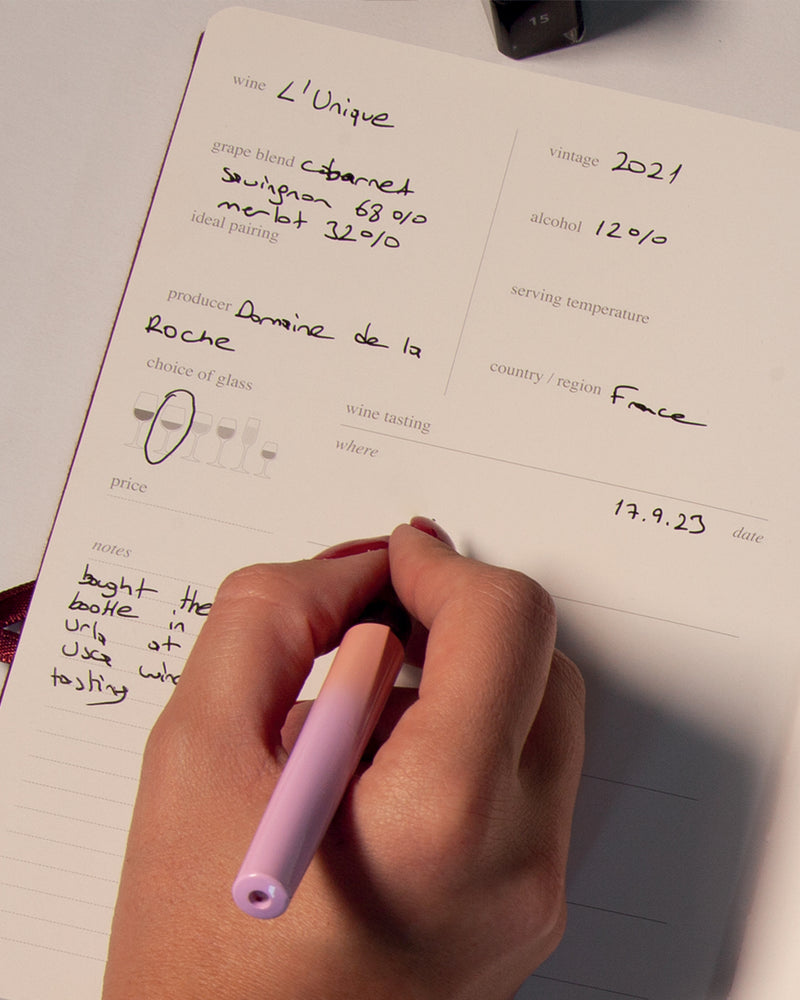 15
wine L'Unique
grape blend cabarnet
sauvingnon 68%
merlot 32%
ideal pairing
producer Domaine de la
Roche
choice of glass
price
notes
bought the
bootle in
Urla at
Usca wine
tasting
vintage 2021
alcohol 12%
serving temperature
country / region France
wine tasting
where
17.9.23 date